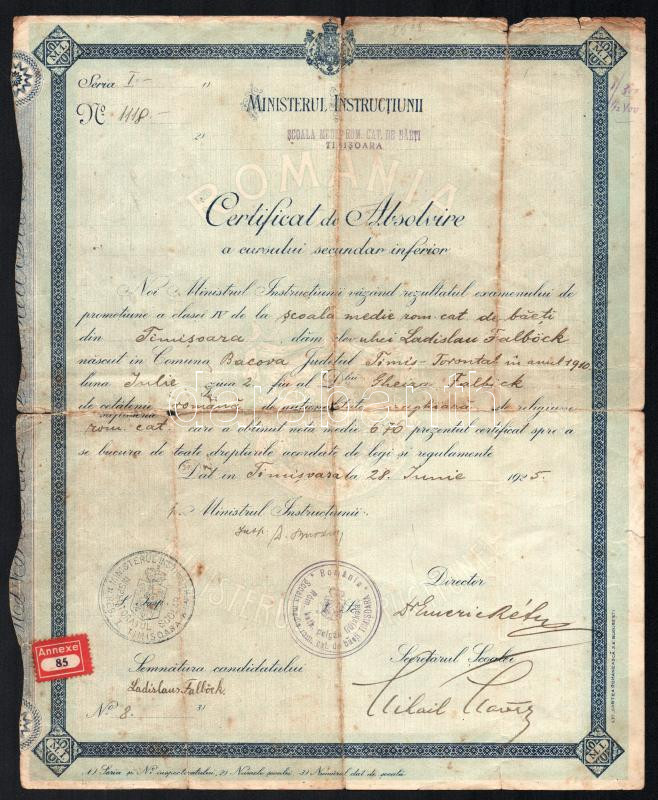 Seria I.- 1)
Nº 1118.-
2)
MINISTERUL INSTRUCȚIUNII
ȘCOALA MEDIE ROM. CAT. DE BĂEȚI
TIMIȘOARA
ROMANIA
Certificat de Absolvire
a cursului secundar inferior
Noi Ministrul Instrucțiunii văzând rezultatul examenului de
promoțiune a clasei IV de la școala medie rom. cat. de băeți
din Timișoara, dăm elevului Ladislau Falböck
născut în Comuna Bacova Județul Timiș-Torontal în anul 1910
luna Iulie ziua 2 fiu al Dlui Falböck
de cetățenie română de naționalitate de religiune
rom. cat. care a obținut nota medie 6·70 prezentul certificat spre a
se bucura de toate drepturile acordate de legi și regulamente
Dat în Timișoara la 28. Iunie 1925.
p. Ministrul Instrucțiunii,
Insp.
TIMIȘOARA
România
TIMIȘOARA
Director
Dr Emeric
Annexe
85
Semnătura candidatului
Ladislaus Falböck.
Nº 8. 3)
Secretarul Școalei
Mihail
1) Seria și Nº inspectoratului, 2) Numele școalei, 3) Numărul dat de școală
darabanth